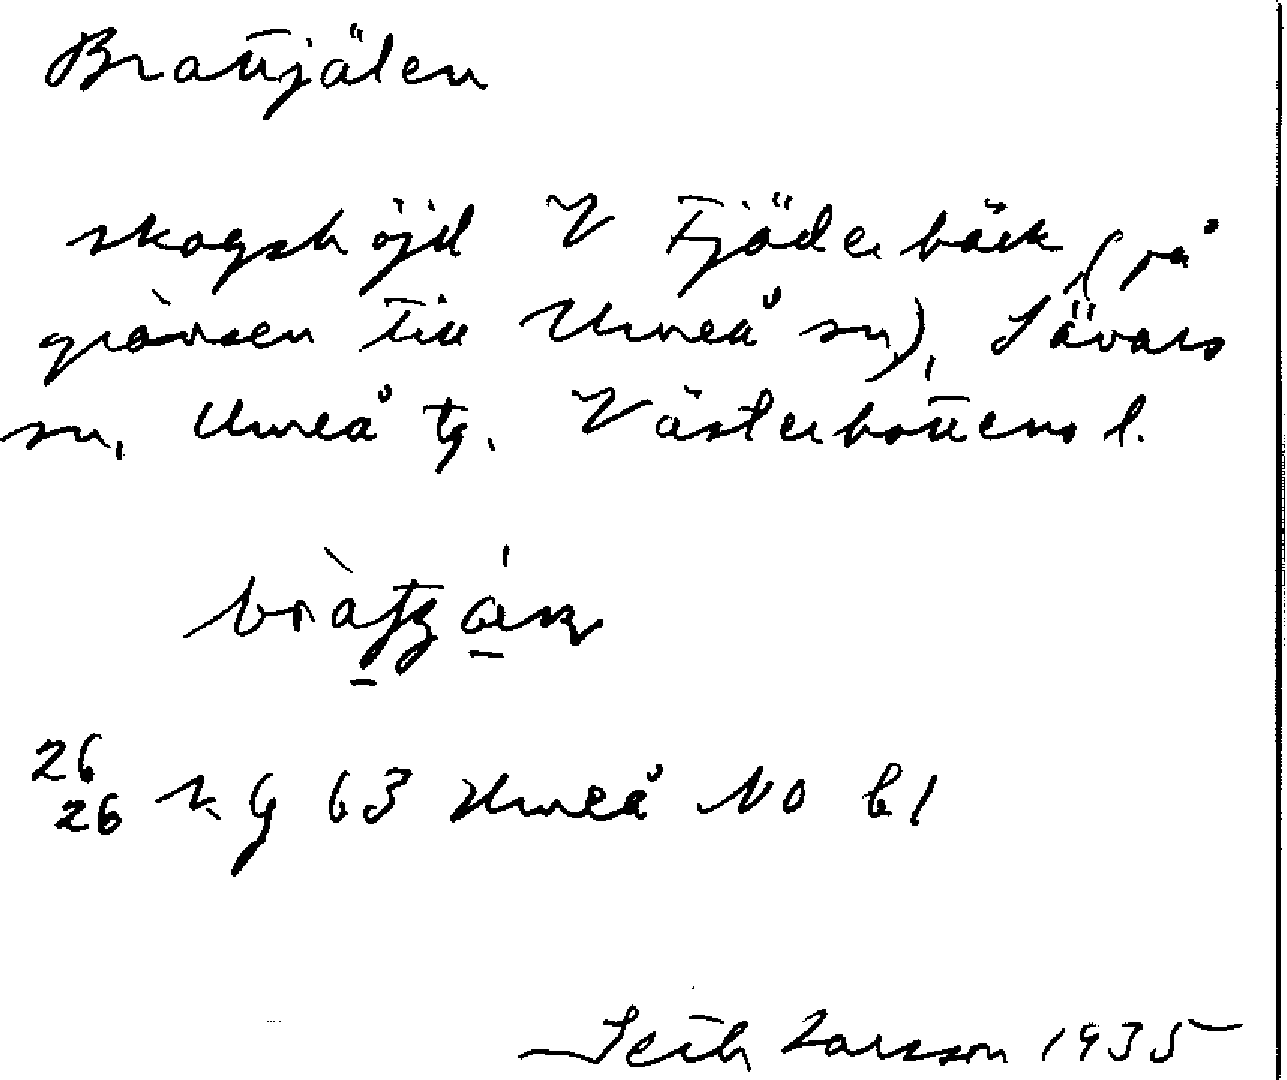 Brattjälen
skogshöjd V Fjäderbäck (på
gränsen till Umeå sn), Sävars
sn, Umeå tg. Västerbottens l.
26
26 k G 63 Umeå NO b1
Seth Larsson 1935